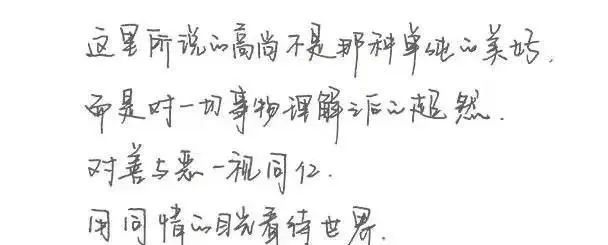 这里所说的高尚不是那种单纯的美好,
而是对一切事物理解之后的超然.
对善与恶一视同仁.
用同情的目光看待世界.